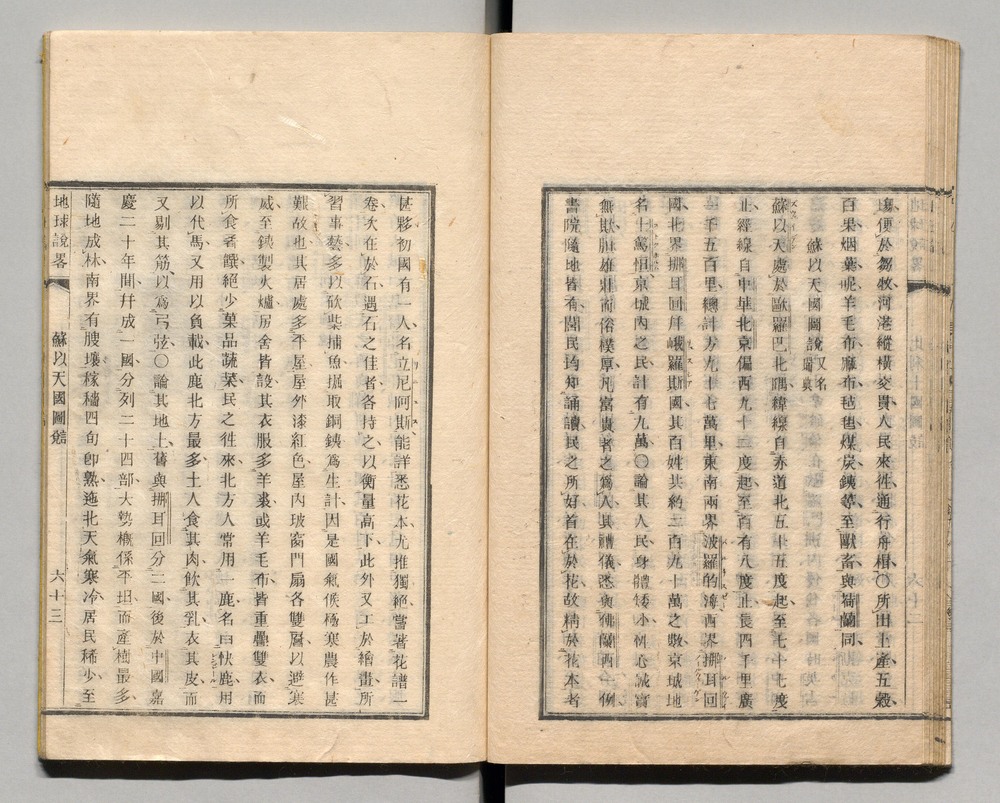 壤便於芻牧河港縱橫交貫人民來徃通行舟楫〇所田土產五穀
百果烟葉呢羊毛布麻布毡毯煤炭鐵等至獸畜與荷蘭同
蘇以天國圖說又名瑞典
蘇以天處於歐羅巴北隅緯線自赤道北五十五度起至七十七度
止經線自中華北京偏西九十三度起至百有八度止長四千里廣
壹千五百里總計方九十七萬里東南兩界波羅的海西界挪耳回
國北界挪耳回并峨羅斯國其百姓共約三百九十萬之數京城地
名士萬恒京城內之民計有九萬〇論其人民身體矮小例心誠實
無欺胆雄壯而俗樸厚凡富貴者之爲人其禮儀悉與彿蘭西一例
書院隨地皆有閤民均知誦讀民之所好首在於花故精於花本者
甚夥初國有一人名立尼阿斯能詳悉花本尤推獨絕嘗著花譜一
卷次在於石遇石之佳者各持之以衡量高下此外又工於繪畫所
習事藝多以砍柴捕魚掘取銅鐵爲生計因是國氣候極寒農作甚
艱故也其居處多平屋屋外漆紅色屋內玻窗門扇各雙層以避寒
威至鐵製火爐房舍皆設其衣服多羊裘或羊毛布皆重疊雙衣而
所食者饌絕少菓品蔬菜民之徃來北方人常用一鹿名曰快鹿用
以代馬又用以負載此鹿北方最多土人食其肉飲其乳衣其皮而
又剔其筋以爲弓弦〇論其地土舊與挪耳回分二國後於中國嘉
慶二十年間幷成一國分列二十四部大勢槪係平坦而產樹最多
隨地成林南界有膄壤稼穡四旬卽熟迤北天氣寒冷居民稀少至
地球說畧 蘇以天國圖說 六十三